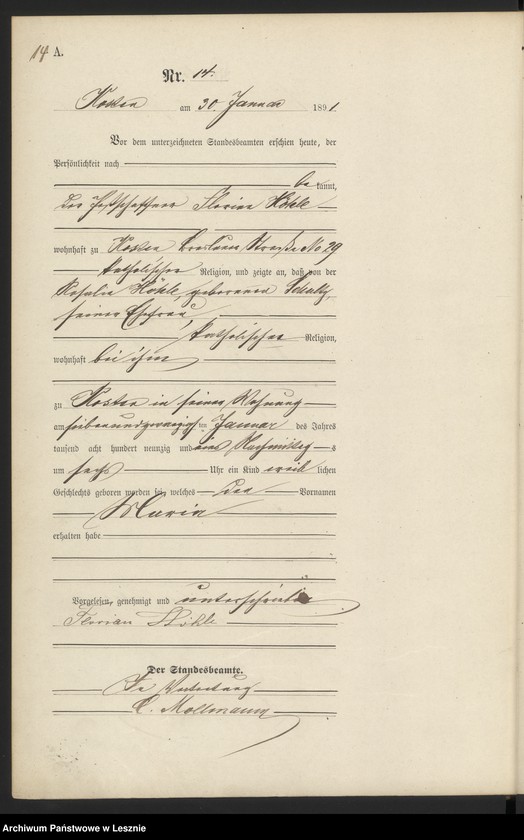 14 A.
Nr. 14.
Kosten am 30. Januar 1891.
Vor dem unterzeichneten Standesbeamten erschien heute, der
Persönlichkeit nach
bekannt,
der Postschaffner Florian Höhle
wohnhaft zu Kosten Breslauer Straße No 29
katholischer Religion, und zeigte an, daß von der
Rosalie Höhle, geborenen Schulz,
seiner Ehefrau,
katholischer Religion,
wohnhaft bei ihm
zu Kosten in seiner Wohnung
am siebenundzwanzigsten Januar des Jahres
tausend acht hundert neunzig und eins Nachmittags
um sechs Uhr ein Kind weiblichen
Geschlechts geboren worden sei, welches den Vornamen
Maria
erhalten habe
Vorgelesen, genehmigt und unterschrieben
Florian Höhle
Der Standesbeamte.
In Vertretung
C. Mollmann
Archiwum Państwowe w Lesznie